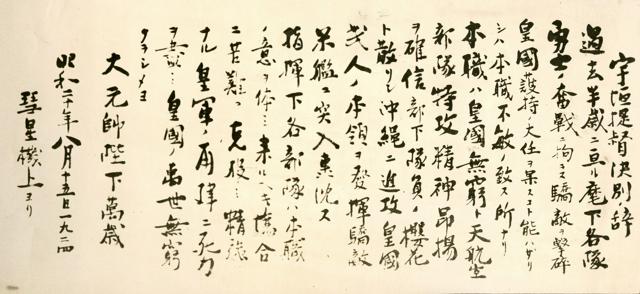 宇垣提督決別ノ辞
過去半歳ニ亘ル麾下各隊
勇士ノ奮戦ニ拘ラズ驕敵ヲ撃砕
皇國護持ノ大任ヲ果スコト能ハザリ
シハ本職不敏ノ致ス所ナリ
本職ハ皇國無窮ト天航空
部隊特攻精神昂揚
ヲ確信部下隊員ノ櫻花
ト散リシ沖縄ニ進攻皇國
武人ノ本領ヲ發揮驕敵
米艦ニ突入轟沈ス
指揮下各部隊ハ本職
ノ意ヲ体シ来ルヘキ
苦難 克服シ精強
ナル皇軍ノ再建ニ死力
ヲ竭シ皇國ヲ萬世無窮
タラシメヨ
大元帥陛下萬歳
昭和二十年八月十五日一九二四
彗星機上ヨリ